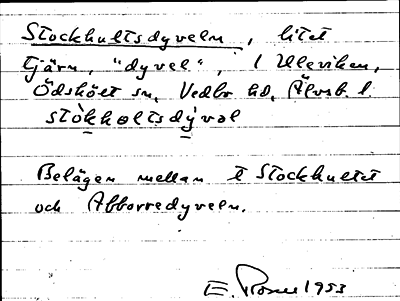 Stockhultsdyveln, litet
tjärn, "dyvel", i Uleviken,
Ödskölt sn, Vedbo hd, Älvsb. l.
stòkholtsdýval
Belägen mellan t Stockhultet
och Abborredyveln.
E. 1953